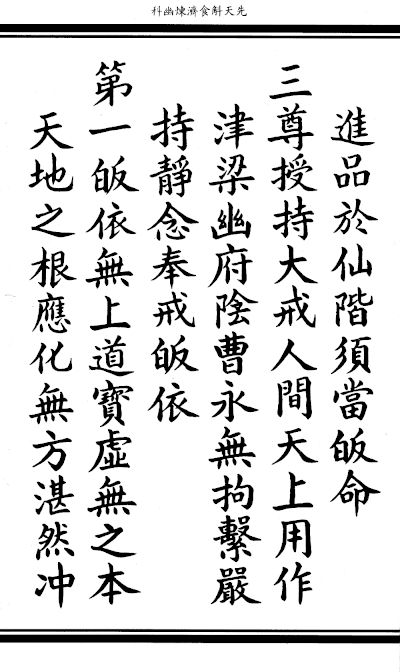 先天斛食濟煉幽科
進品於仙階須當皈命
三尊授持大戒人間天上用作
津梁幽府陰曹永無拘繫嚴
持靜念奉戒皈依
第一皈依無上道寶虛無之本
天地之根應化無方湛然冲